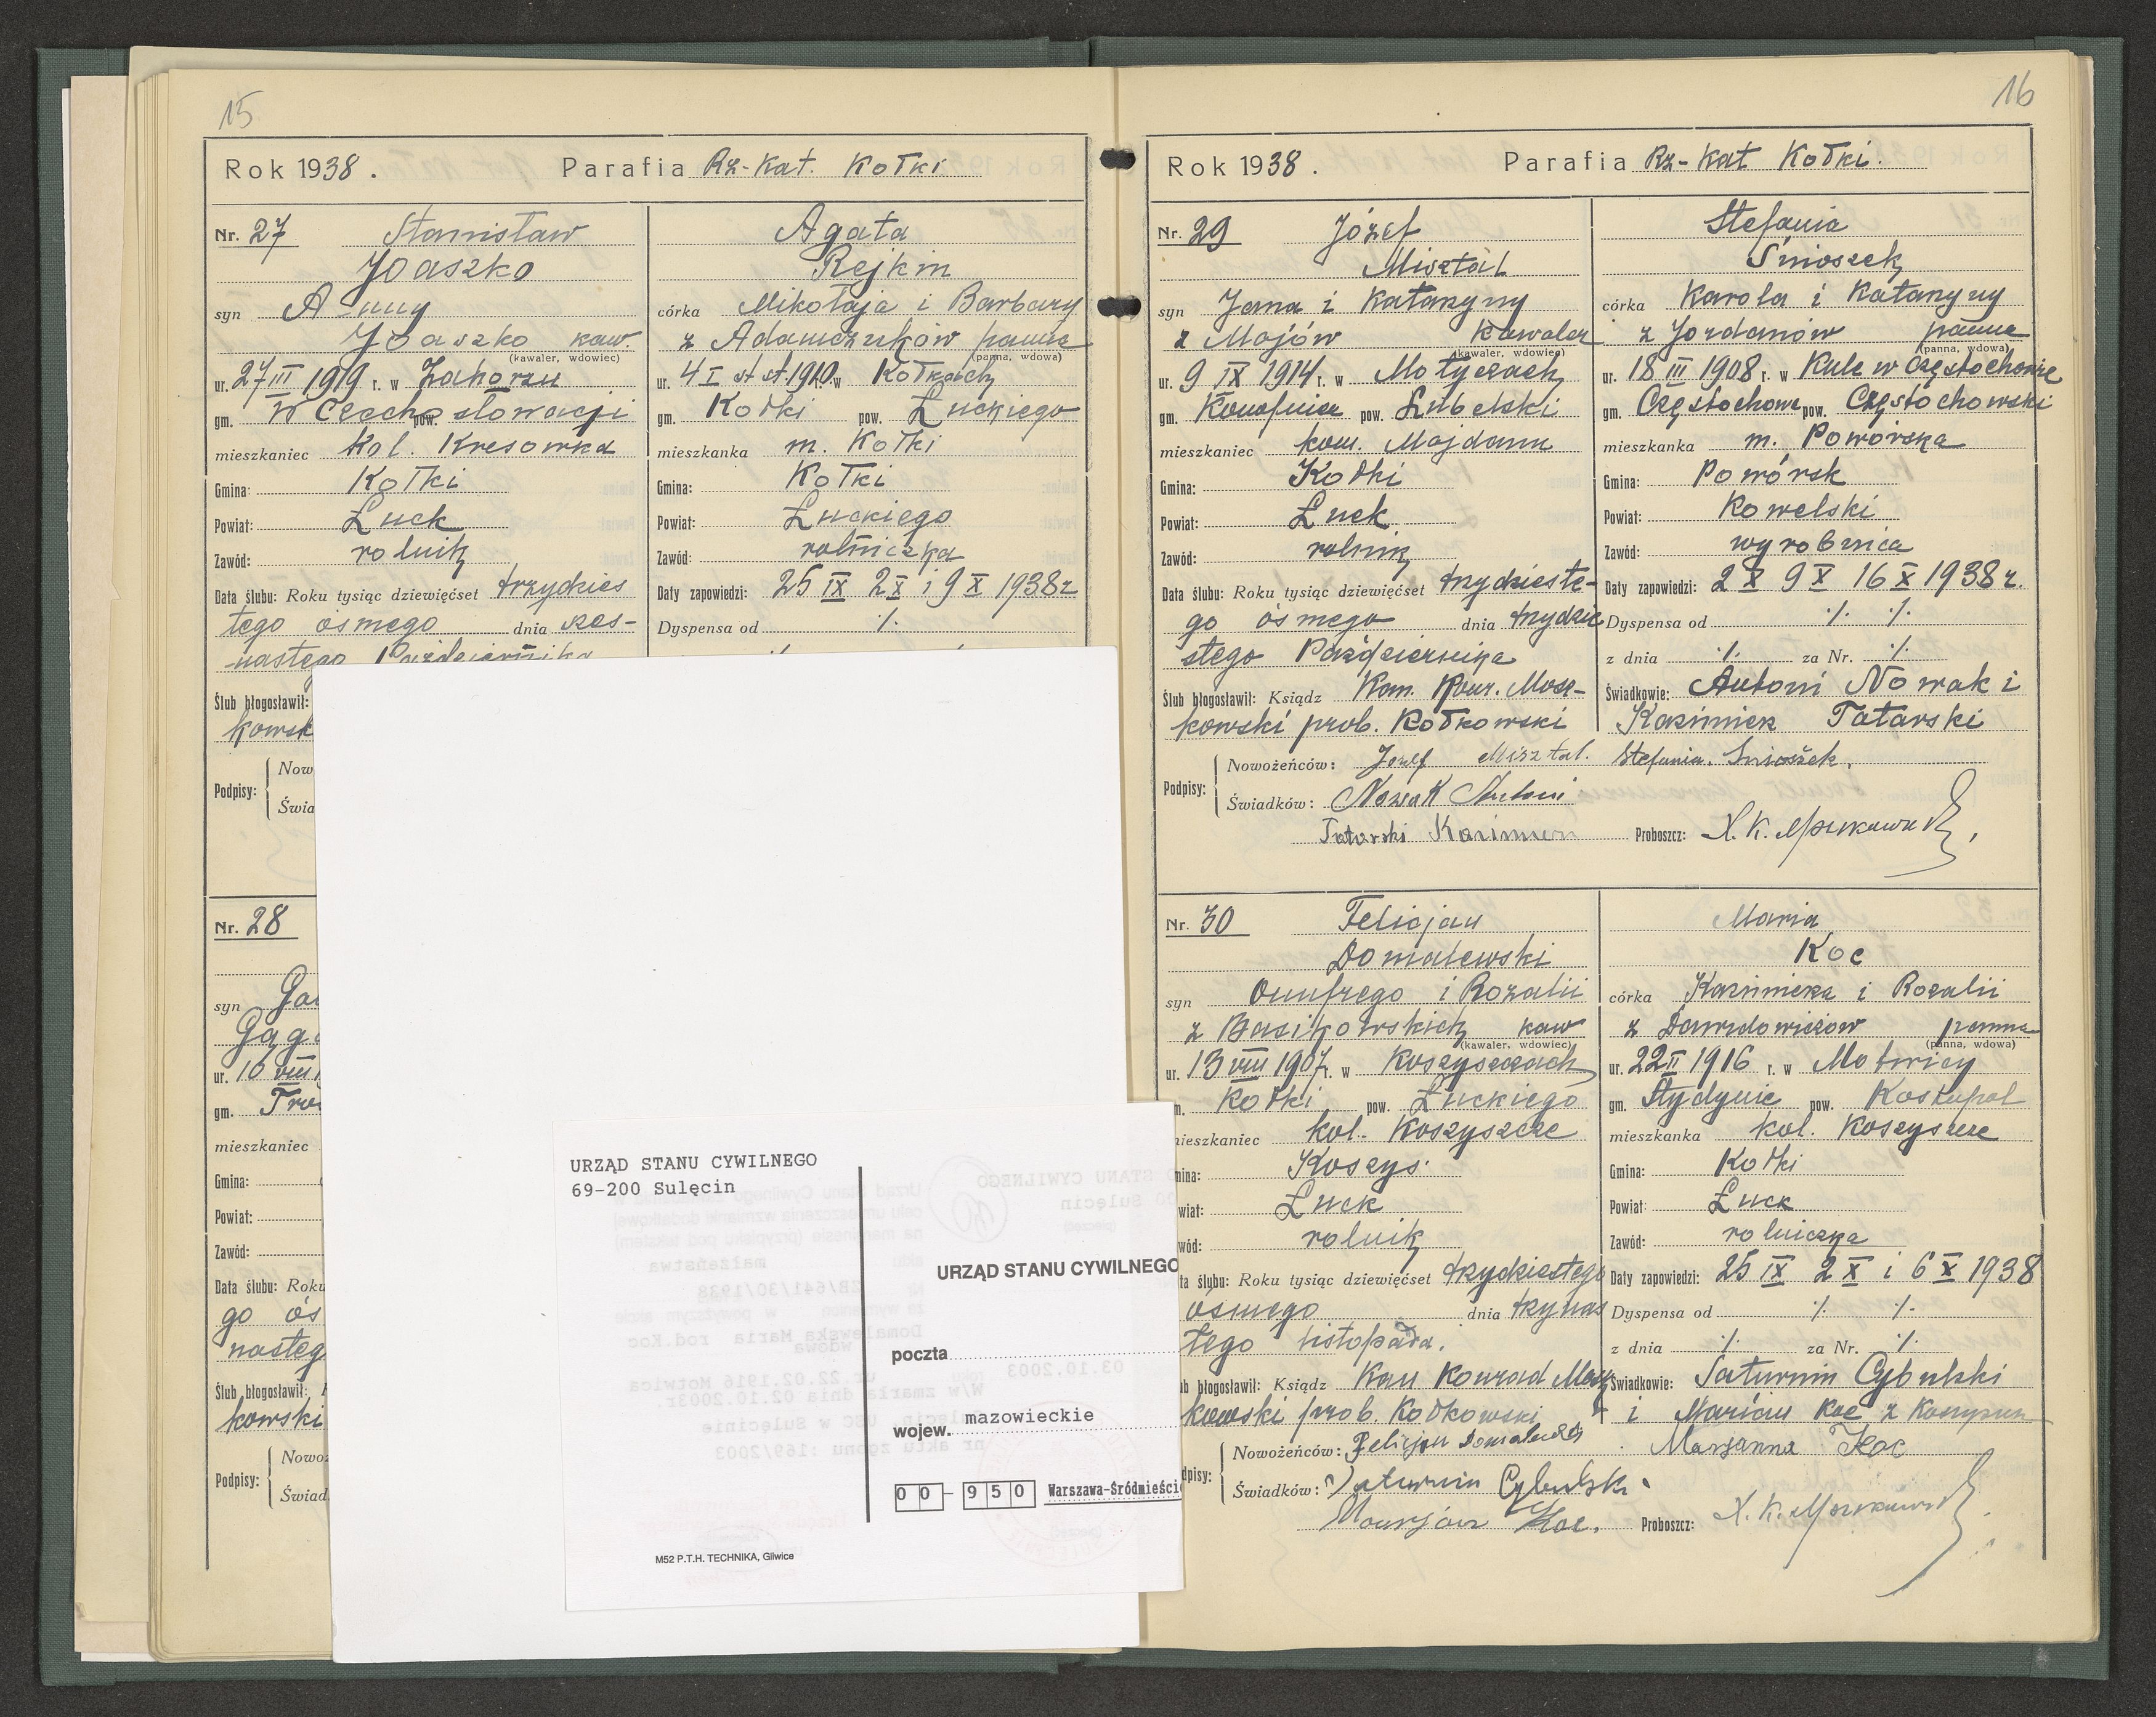 15
Rok 1938. Parafia Rz-Kat. Kołki
Nr. 27 Stanisław
Joaszko
syn Anny
Joaszko kaw.
(kawaler, wdowiec)
ur. 27 III 1919 r. w Zahorzu
gm. W Czechosłowacji pow.
mieszkaniec kol. Kresowka
Gmina: Kołki
Powiat: Łuck
Zawód: rolnik
Data ślubu: Roku tysiąc dziewięćset trzydzies
tego osmego dnia szes-
nastego Października
Ślub błogosławił:
kowsk
Podpisy:
Now
Świa
Agata
Rejkin
córka Mikołaja i Barbary
z Adamczuków panna
(panna, wdowa)
ur. 4 I st st. 1910 w Kołkach
gm. Kołki pow. Łuckiego
mieszkanka m. Kołki
Gmina: Kołki
Powiat: Łuckiego
Zawód: rolniczka
Daty zapowiedzi: 25 IX 2 X i 9 X 1938 r
Dyspensa od ./.
Nr. 28
syn
ur. 10 VIII
gm.
mieszkaniec
Gmina:
Powiat:
Zawód:
Data ślubu: Roku
go ós
nasteg
Ślub błogosławił:
kowski
Podpisy:
Nowo
Świad
URZĄD STANU CYWILNEGO
69-200 Sulęcin
URZĄD STANU CYWILNEGO
poczta
wojew. mazowieckie
00-950 Warszawa-Śródmieści
M52 P.T.H. TECHNIKA, Gliwice
16
Rok 1938. Parafia Rz-Kat Kołki.
Nr. 29 Józef
Misztal
syn Jana i Katarzyny
z Majów kawaler
(kawaler, wdowiec)
ur. 9 IX 1914 r. w Motyczach
gm. Konopnica pow. Lubelski
mieszkaniec kom. Majdanu
Gmina: Kołki
Powiat: Łuck
Zawód: rolnik
Data ślubu: Roku tysiąc dziewięćset trzydzieste-
go ósmego dnia trzydzie
stego Października
Ślub błogosławił: Ksiądz Kan. Konr. Mosz-
kowski prob. Kołkowski
Stefania
Śnioszek
córka Karola i Katarzyny
z Jordanów panna
(panna, wdowa)
ur. 18 III 1908 r. w Kule w Częstochowie
gm. Częstochowa pow. Częstochowski
mieszkanka m. Powórska
Gmina: Powórsk
Powiat: Kowelski
Zawód: wyrobnica
Daty zapowiedzi: 2 X 9 X 16 X 1938 r.
Dyspensa od ./. ./.
z dnia ./. za Nr. ./.
Świadkowie: Antoni Nowak i
Kazimierz Tatarski
Podpisy:
Nowożeńców: Józef Misztal. Stefania. Śnioszek.
Świadków: Nowak Antoni
Tatarski Kazimierz Proboszcz: X. K.
Nr. 30 Felicjan
Domalewski
syn Onufrego i Rozalii
z kaw
(kawaler, wdowiec)
ur. 13 VIII 1907 r. w Koszyszczach
m. Kołki pow. Łuckiego
mieszkaniec kol. Koszyszcze
mina: Koszys.
wiat: Łuck
wód: rolnik
ta ślubu: Roku tysiąc dziewięćset trzydziestego
ósmego dnia trzynas
tego listopada.
b błogosławił: Ksiądz Kan Konrad Mosz
kowski prob. Kołkowski
Maria
Koc
córka Kazimierza i Rozalii
z Dawidowiczów panna
(panna, wdowa)
ur. 22 II 1916 r. w Motwicy
gm. Stydynie pow. Kostopol
mieszkanka kol. Koszyszcze
Gmina: Kołki
Powiat: Łuck
Zawód: rolniczka
Daty zapowiedzi: 25 IX 2 X i 6 X 1938
Dyspensa od ./. ./.
z dnia ./. za Nr. ./.
Świadkowie: Saturnin Cybulski
i Marian Koc z
dpisy:
Nowożeńców: Felicjan Domalewski Marjanna Koc
Świadków: Saturnin Cybulski
Marjan Koc. Proboszcz: X. K.